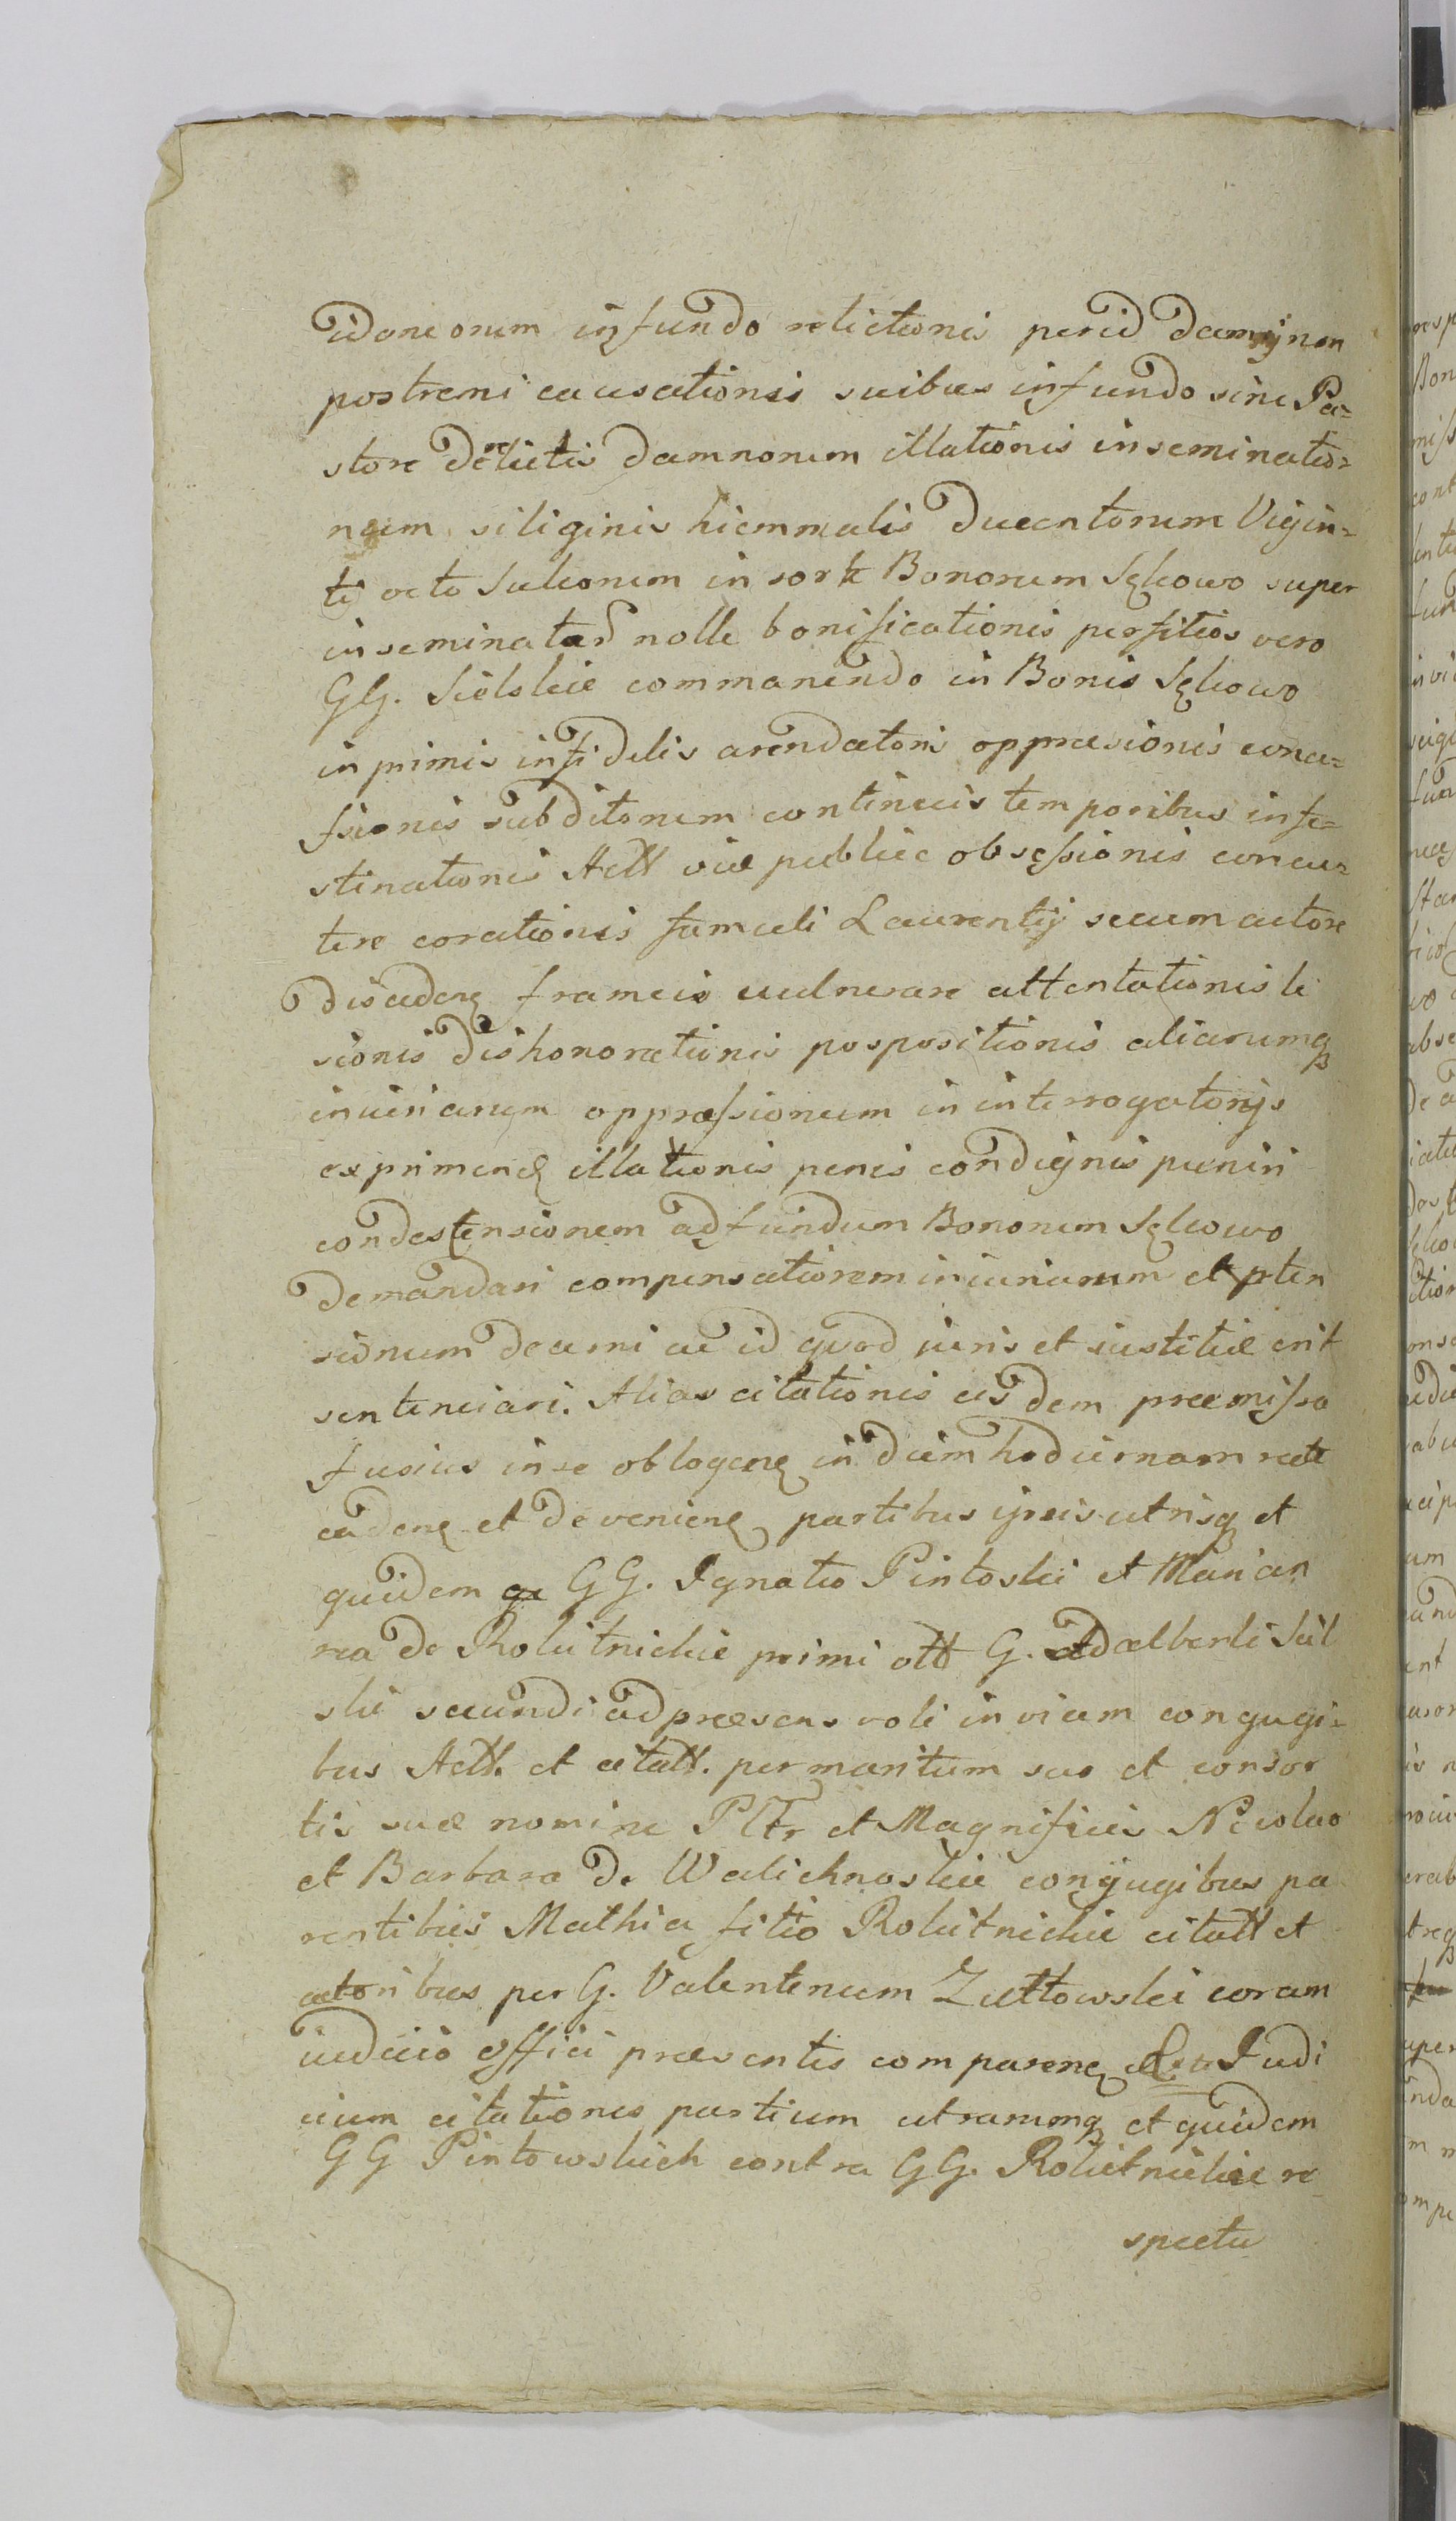 idoneorum in fundo relictionis per id damnj non
postremi causationis suibus in fundo sine Pa=
store derelictis damnorum illationis inseminatio=
num siliginis hiemmalis Ducentorum Vigin=
ti octo Sulconum in sorte Bonorum Sękowo super
inseminatar nolle bonificationis per filios vero
GG. Sielskie commanendo in Bonis Sękowo
in primis infidelis arendatoris oppraesionis concu=
ssionis subditorum continuis temporibus infe=
stinationis Actt viae publicae obsessionis concu=
tere corationis famuli Laurentij secum actore
discedenę frameis vulnerare attentationis le
sionis dishonorationis pospositionis aliarumq
iniuriarum oppraessionum in interrogatorijs
exprimenę illationis penis condignis puniri
condestensionem ad fundum Bonorum Sękowo
demandari compensationem iniuriarum et pten
sionum decerni ac id quod iuris et iustitiae erit
sentenciari. Alias citationis eis dem praemissa
fusius in se oblogenę in diem hodiernam recte
cadenę et devenienę partibus ipsis utrisq et
quidem GG. Ignatio Pintoski et Marian
na de Rokitnickie primi olt G. Adalberti Siel
ski secundi ad praesens voti inviam conjugi=
bus Actt. et citatt. per maritum suo et consor
tis suae nomine Pltr et Magnificis Nicolao
et Barbara de Walichnoskie conjugibus pa
rentibus Mathia filio Rokitnickie citatt et
actoribus per G. Valentinum Zuttowski coram
iudicio offici praesentis comparenę Judi
cium citationes partium utrarumq et quidem
GG Pintowskich contra GG. Rokitnickie re
spectu